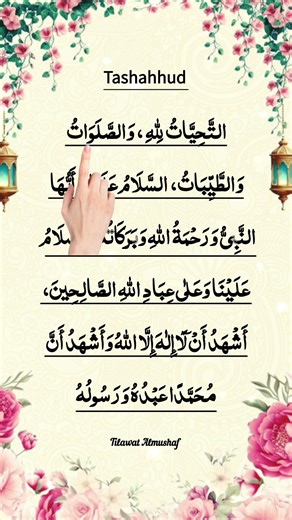 Tashahhud
التَّحِيَّاتُ لِلّٰهِ، وَالصَّلَوَاتُ
وَالطَّيِّبَاتُ، السَّلَامُ أَيُّهَا
النَّبِيُّ وَرَحْمَةُ اللهِ وَبَرَكَاتُهُ
عَلَيْنَا وَعَلٰى عِبَادِ اللهِ الصَّالِحِينَ،
أَشْهَدُ أَنْ لَّا إِلٰهَ إِلَّا اللهُ وَأَشْهَدُ أَنَّ
مُحَمَّدًا عَبْدُهُ وَرَسُولُهُ
Tilawat Almushaf